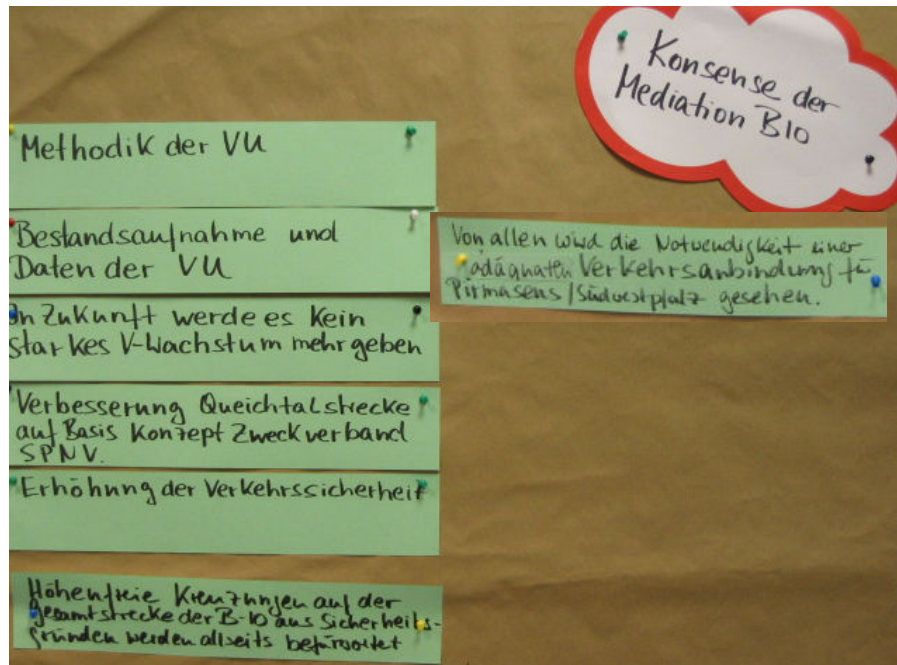 Konsense der
Mediation B10
Methodik der VU
Bestandsaufnahme und
Daten der VU
In Zukunft werde es kein
starkes V-Wachstum mehr geben
Verbesserung Queichtalstrecke
auf Basis Konzept Zweckverband
SPNV.
Erhöhung der Verkehrssicherheit
Höhenfreie Kreuzungen auf der
Gesamtstrecke der B-10 aus Sicherheits-
gründen werden allseits befürwortet
Von allen wird die Notwendigkeit einer
adäquaten Verkehrsanbindung für
Pirmasens/Südwestpfalz gesehen.